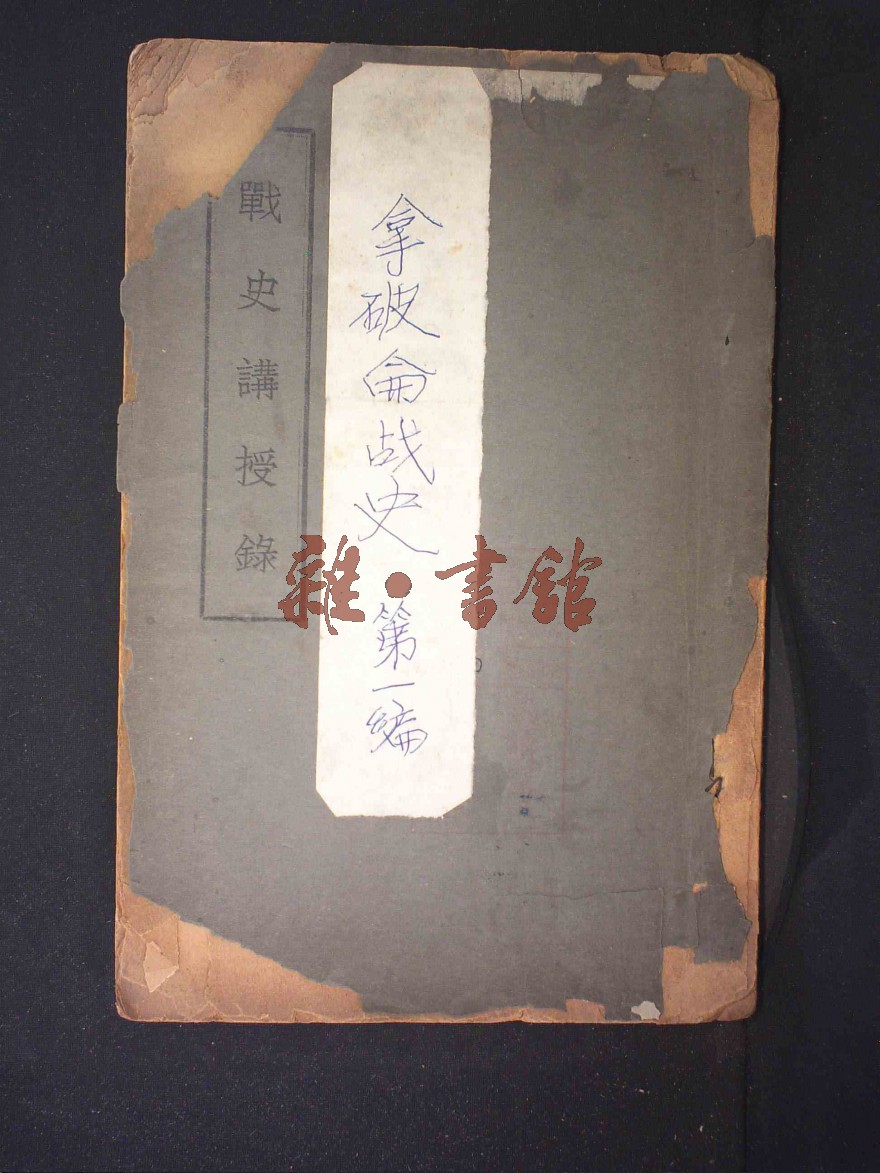 戰史講授錄
拿破侖战史 第一编
雜·書館